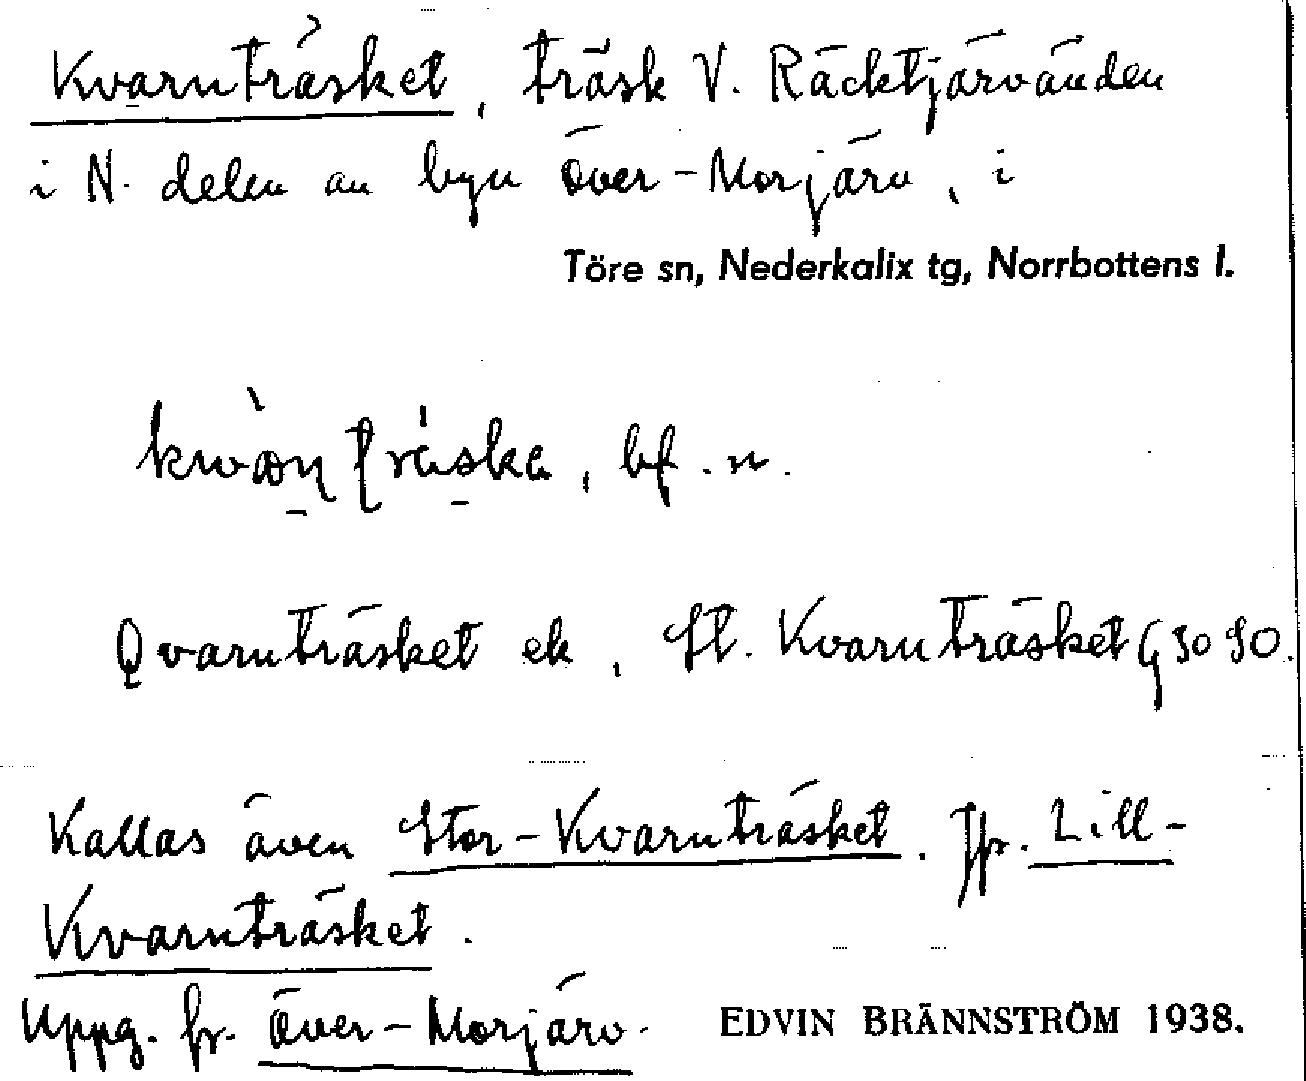 Kvarnträsket, träsk V. Räcktjärvänden
i N. delen av byn Över-Morjärv, i
Töre sn, Nederkalix tg, Norrbottens l.
bf. n.
Qvarnträsket ek, St. Kvarnträsket G 30 SO.
Kallas även Stor-Kvarnträsket. Jfr. Lill-
Kvarnträsket.
Uppg. fr. Över-Morjärv.
EDVIN BRÄNNSTRÖM 1938.